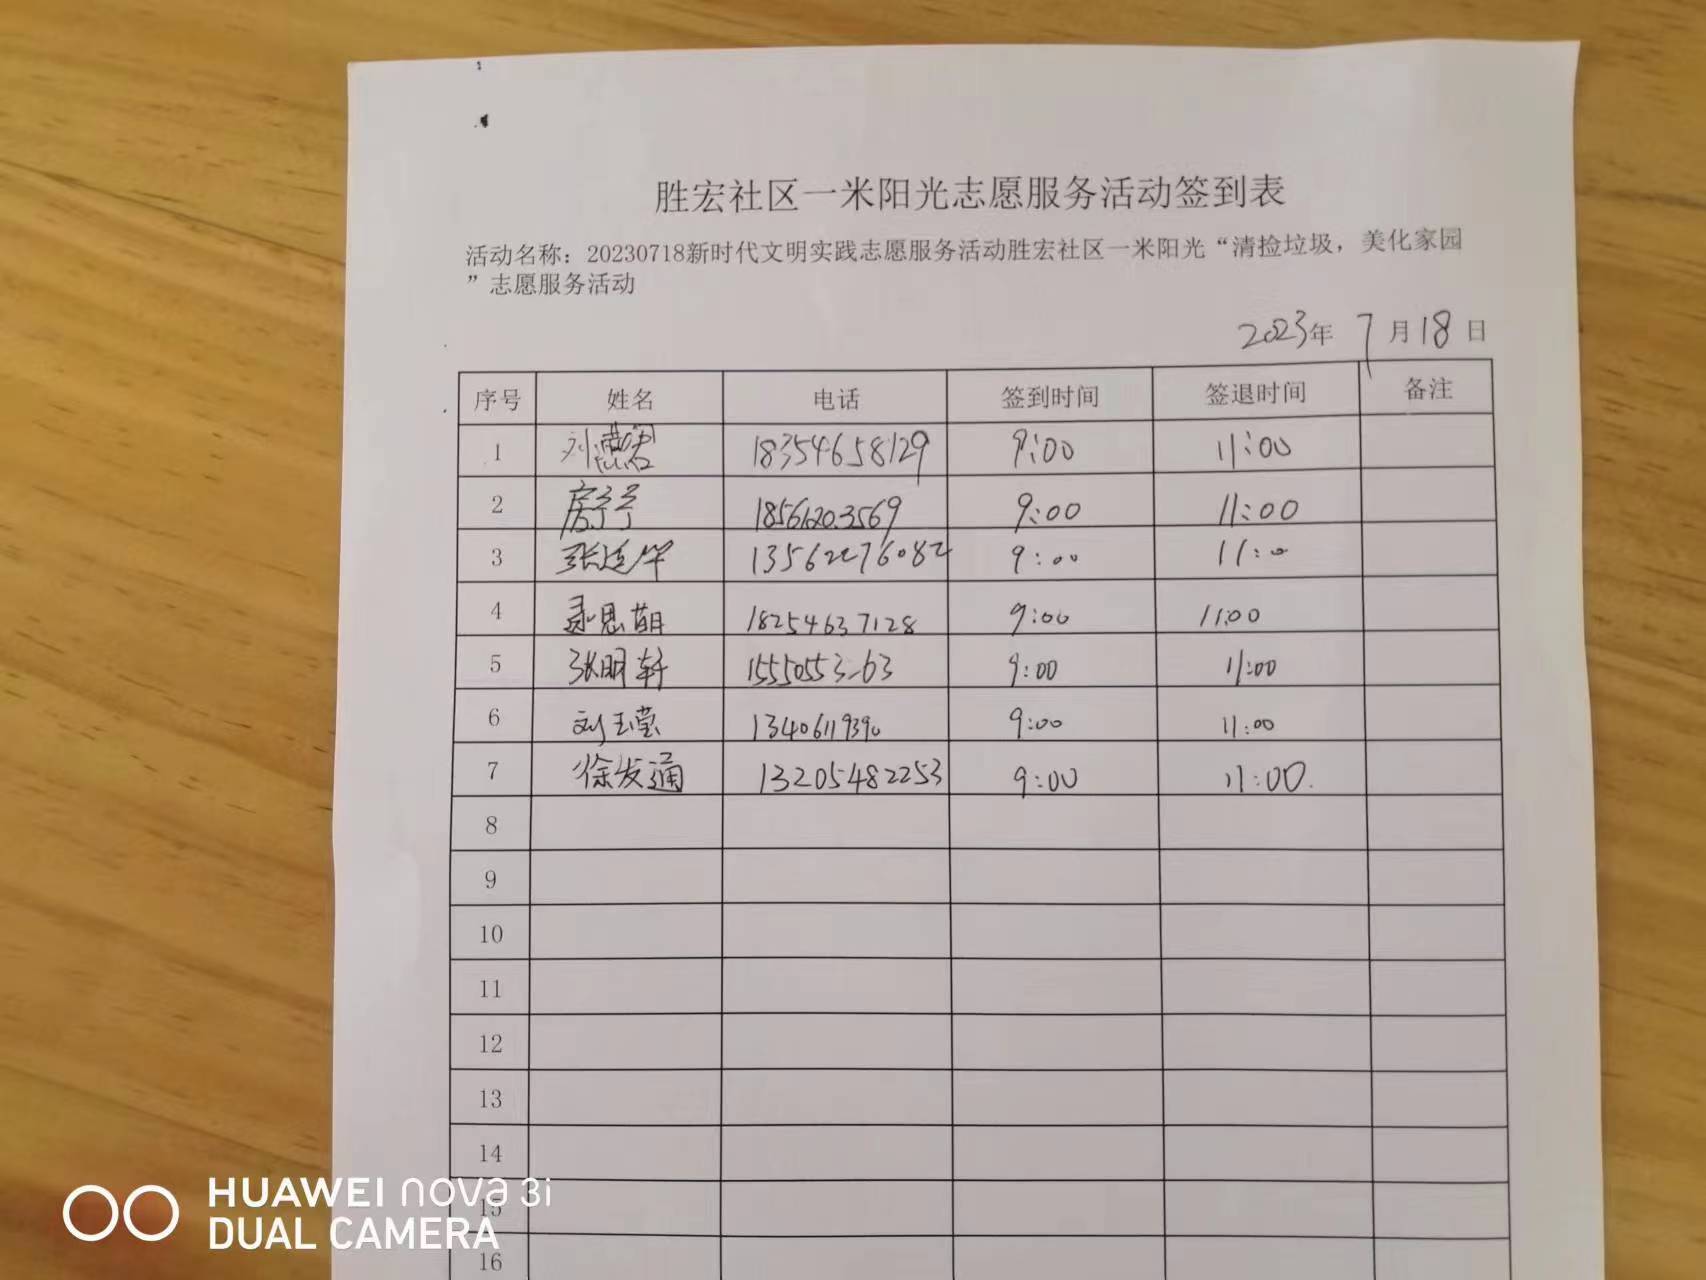 胜宏社区一米阳光志愿服务活动签到表
活动名称：20230718新时代文明实践志愿服务活动胜宏社区一米阳光“清捡垃圾，美化家园
”志愿服务活动
2023年 7月18日
序号 姓名 电话 签到时间 签退时间 备注
1 刘 18354658129 9:00 11:00
2 房 18561203569 9:00 11:00
3 张连华 13562276082 9:00 11:0
4 思萌 18254637128 9:00 11:00
5 张明轩 9:00 11:00
6 刘玉莹 13406119390 9:00 11:00
7 徐发通 13205482253 9:00 11:00.
8
9
10
11
12
13
14
15
16
HUAWEI nova 3i
DUAL CAMERA